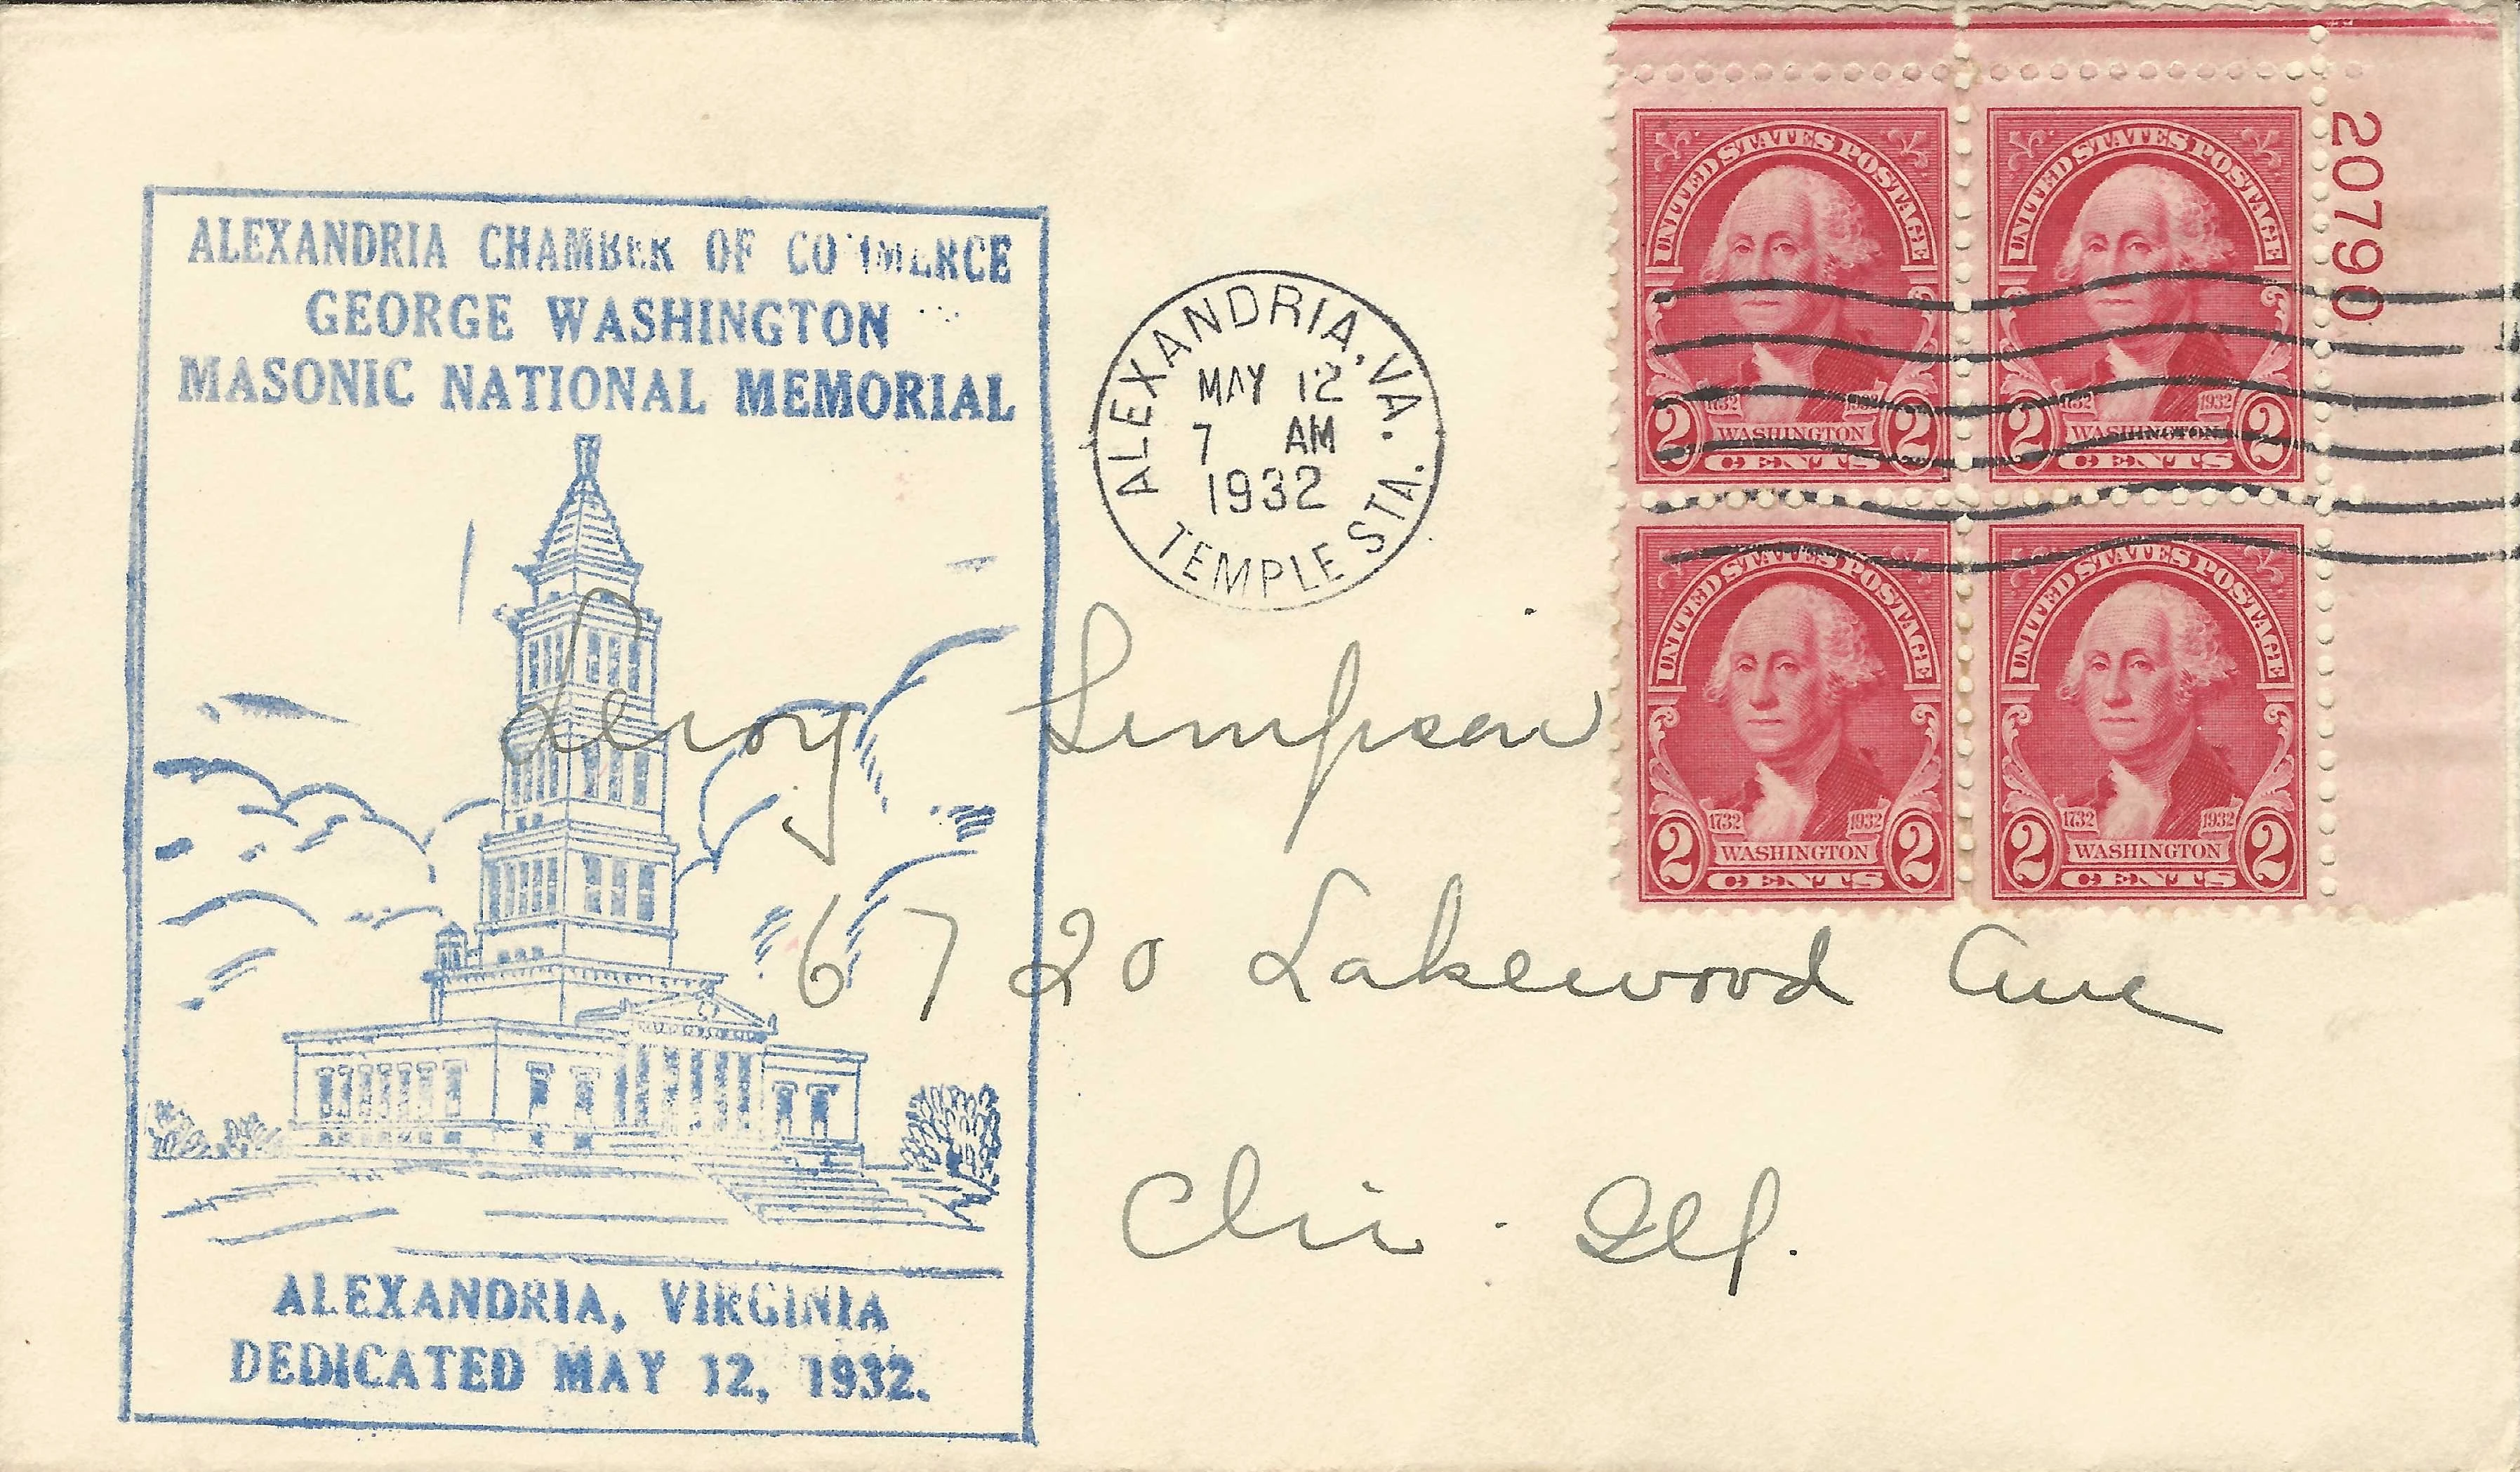 ALEXANDRIA CHAMBER OF COMMERCE
GEORGE WASHINGTON
MASONIC NATIONAL MEMORIAL
ALEXANDRIA, VIRGINIA
DEDICATED MAY 12, 1932.
ALEXANDRIA, VA.
MAY 12
7 AM
1932
TEMPLE STA.
UNITED STATES POSTAGE
1732 1932
2 WASHINGTON 2
CENTS
UNITED STATES POSTAGE
1732 1932
2 WASHINGTON 2
CENTS
20790
UNITED STATES POSTAGE
1732 1932
2 WASHINGTON 2
CENTS
UNITED STATES POSTAGE
1732 1932
2 WASHINGTON 2
CENTS
Leroy Simpson
6720 Lakewood Ave
Ill.